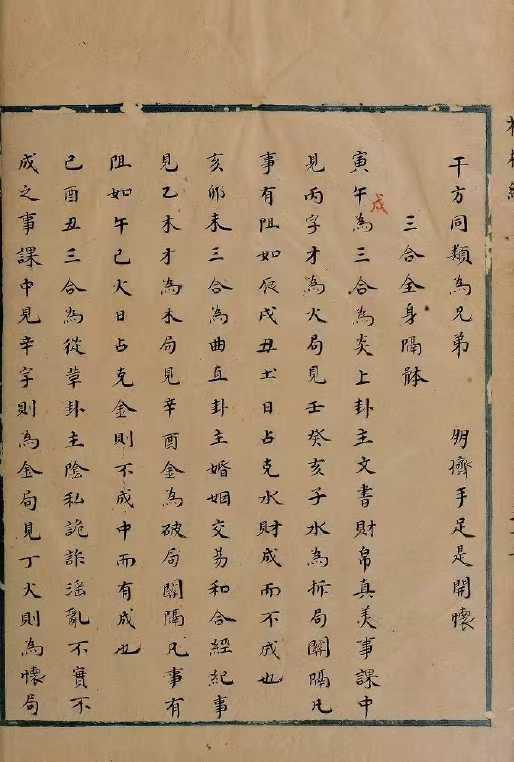 干方同類為兄弟　朋濟手足是開懷
三合全身隔骵
寅午戌為三合為炎上卦主文書財帛真美事課中
見丙字才為火局見壬癸亥子水為拆局關隔凡
事有阻如辰戌丑土日占克水財成而不成也
亥卯未三合為曲直卦主婚姻交易和合經紀事
見乙木才為木局見辛酉金為破局關隔凡事有
阻如午巳火日占克金則不成中而有成也
巳酉丑三合為從革卦主陰私詭詐滛亂不實不
成之事課中見辛字則為金局見丁火則為懷局